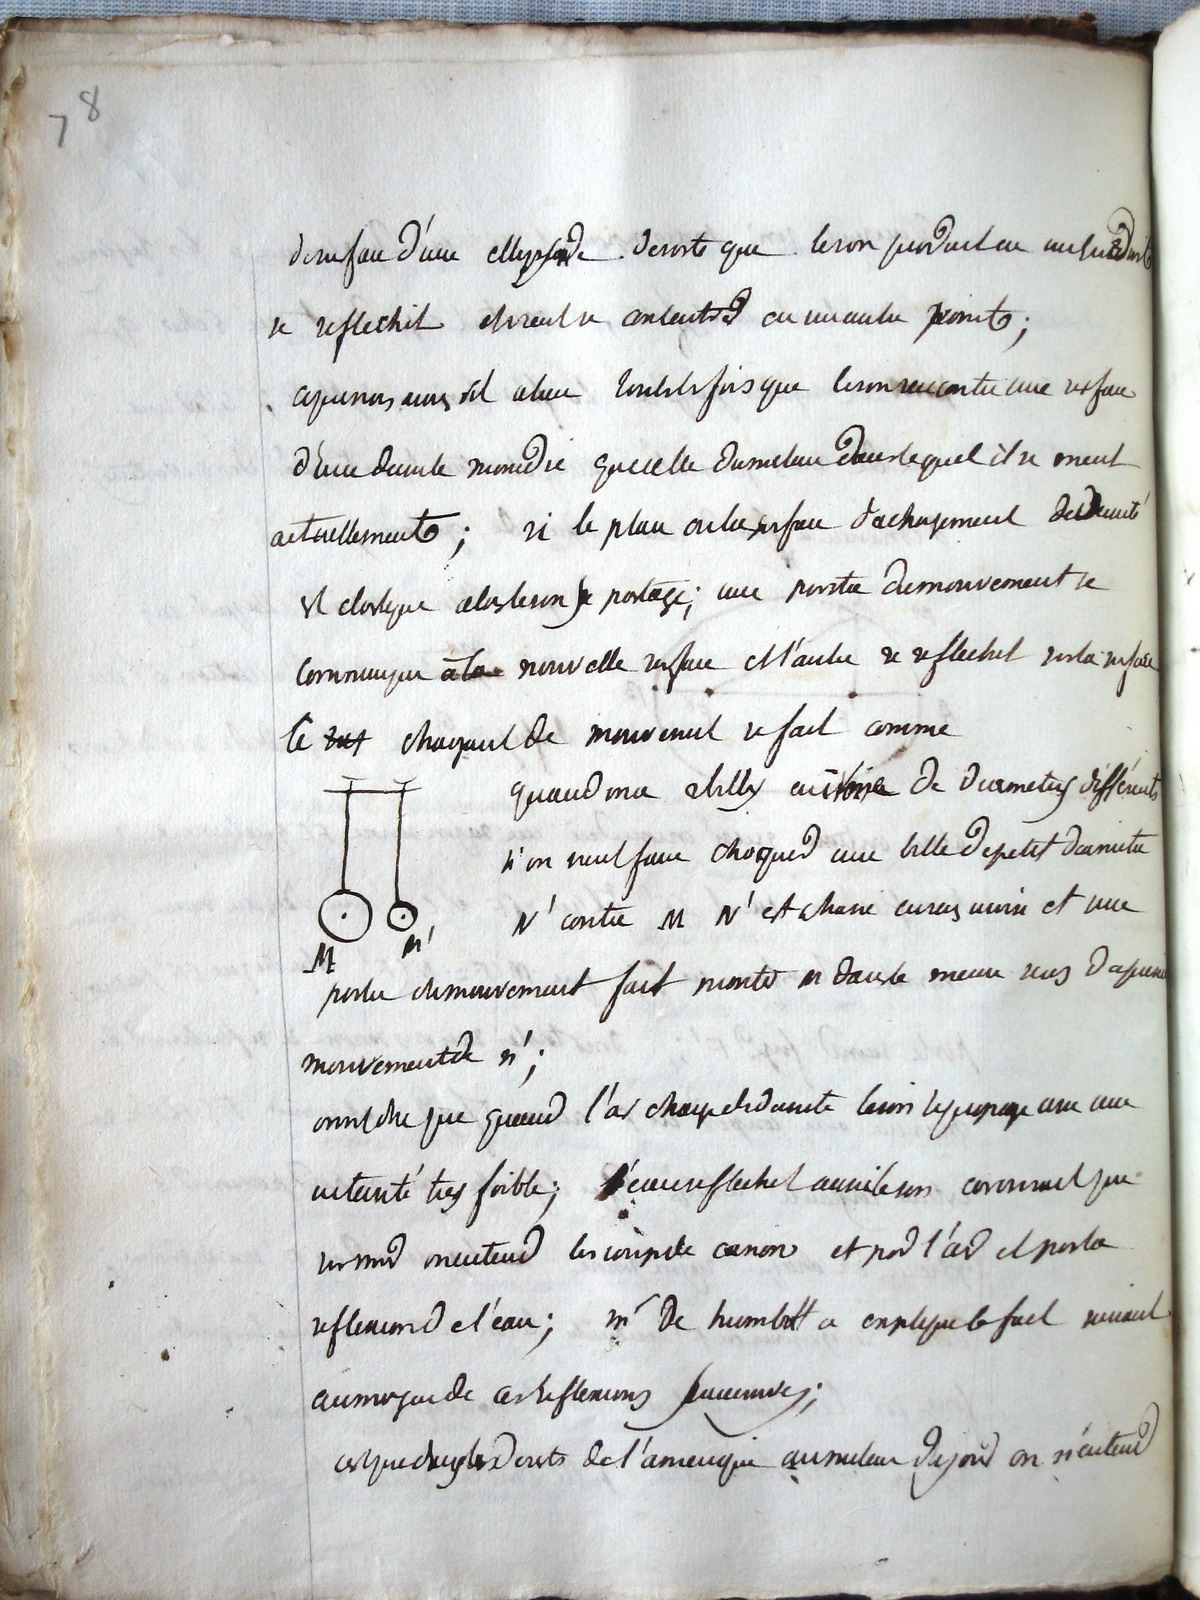 78
d'une ellypsoide desorte que le son produit en un endroit
se reflechit et vient se concentred en un autre point;
a lieu toutes les fois que le son rencontre une surface
d'une densite moindre que celle du milieu dans lequel il se meut
actuellement; si le plan ou la surface de changement de densité
est elastique alors le son se partage; une partie du mouvement se
communique à la nouvelle surface et l'autre se reflechit sur la surface
le changement de mouvement se fait comme
quand on a 2 billes de diametres différents
si on veut faire choqued une bille de petit diametre
N' contre M N' est chassé en sens inverse et une
M m'
partie du mouvement fait monter m dans le meme sens
mouvement de n';
que quand l'air change de densite le son se propage avec une
intensité tres foible; l'eau reflechit aussi le son on connait que
sur mer on entend les coups de canon et pod l'aid et par la
reflexion de l'eau; mr de humboldt a expliqué le fait suivant
au moyen de ces reflexions successives;
deserts de l'amerique au milieu du jour on n'entend